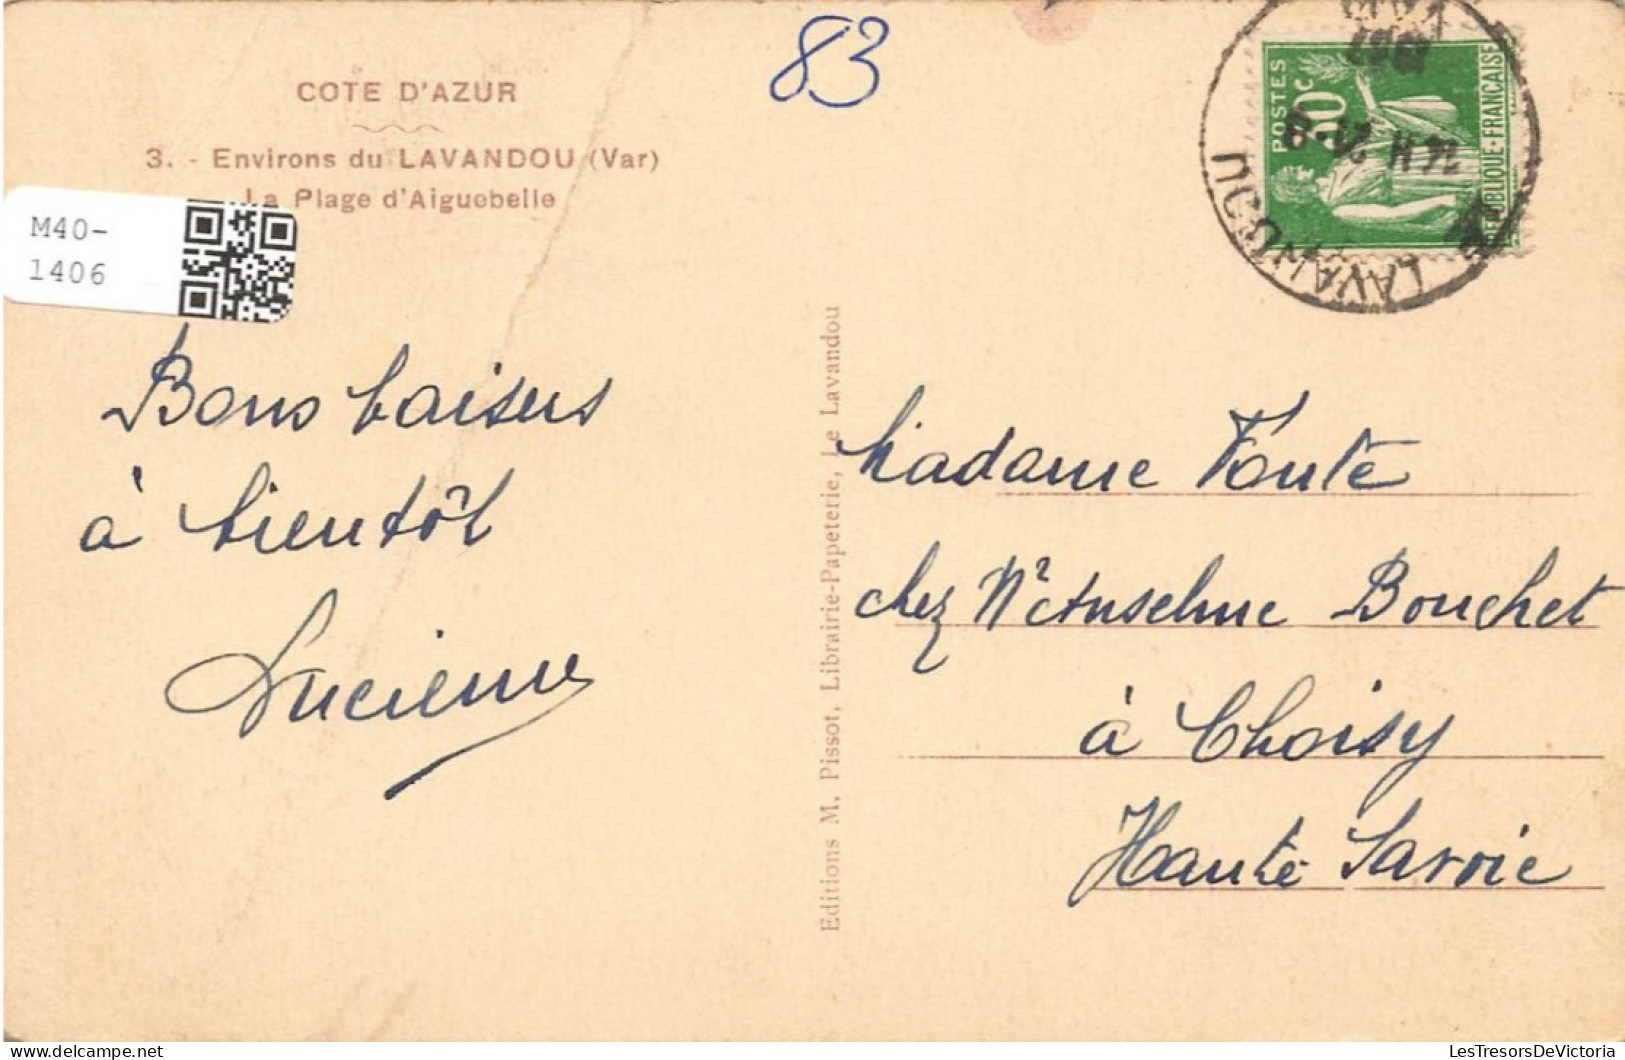 83
COTE D'AZUR
3. - Environs du LAVANDOU (Var)
La Plage d'Aiguebelle
M40-
1406
Bons baisers
à bientôt
Lucienne
Editions M. Pissot, Librairie-Papeterie, Le Lavandou
POSTES
50c
REPUBLIQUE-FRANÇAISE
LAVANDOU
Madame
chez Mr Anselme Bouchet
à Choisy
Haute Savoie
LesTresorsDeVictoria
delcampe.net